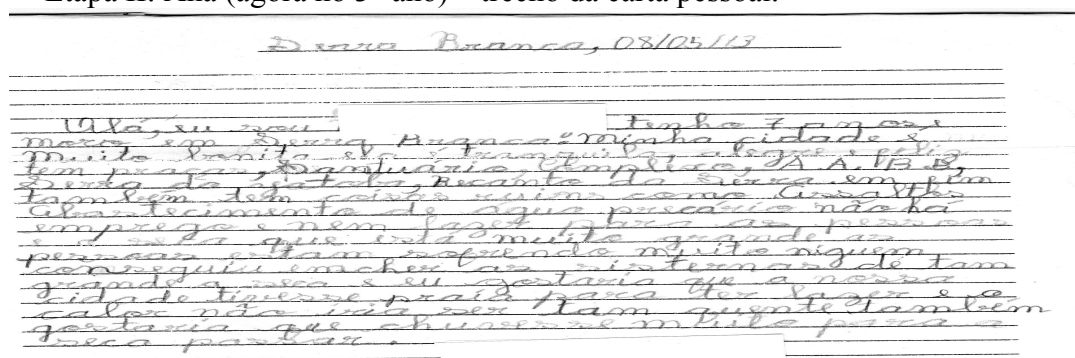 Serra Branca, 08/05/13
Olá, eu sou tenho 7 anos e
moro em Serra Branca. Minha cidade é
muito bonita ela tranquila, alegre e feliz
tem praças, Santuário, A.A.B.B,
Serra do Jatobá, Recanto da Serra em fim
também tem coisas ruins como assaltos
abastecimento de água precário não há
emprego e nem lazer para as pessoas
e a seca que está muito grande as
pessoas estam sofrendo muito niguem
conseguiu emcher as sisternas de tam
grande a seca e eu gostaria que a nossa
cidade tivesse praia para ter lazer e o
calor não iria ser tam quente também
gostaria que chuvesse muito para a
seca passar.